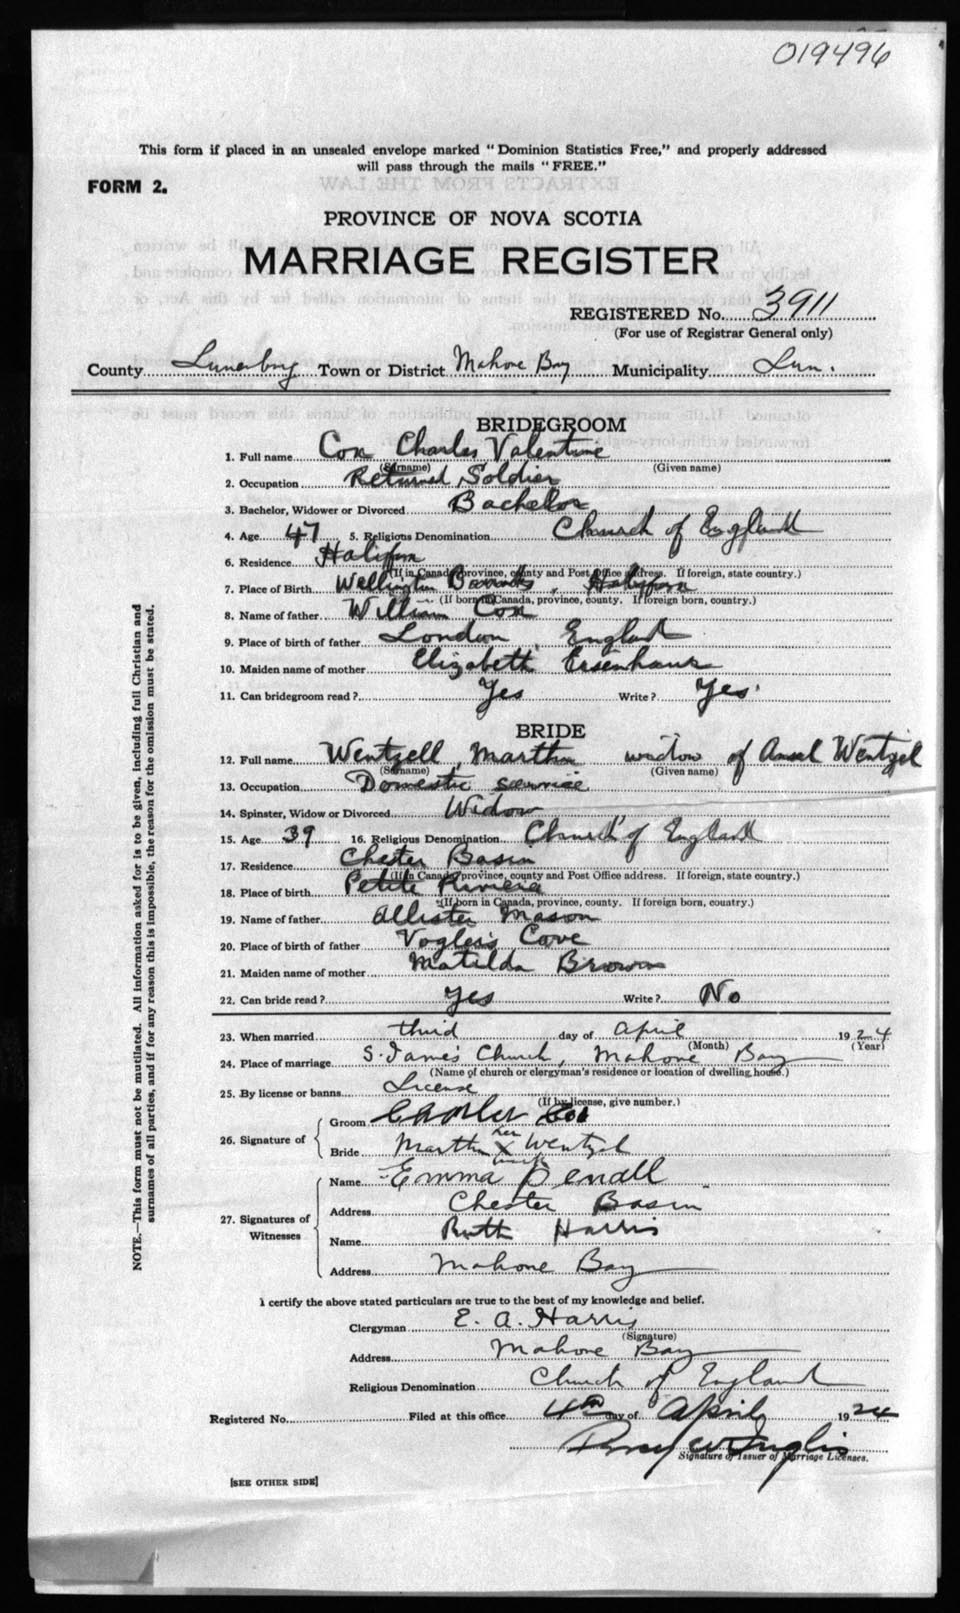 019496
This form if placed in an unsealed envelope marked "Dominion Statistics Free," and properly addressed
will pass through the mails "FREE."
FORM 2.
PROVINCE OF NOVA SCOTIA
MARRIAGE REGISTER
REGISTERED No. 3911
(For use of Registrar General only)
County Lunenburg Town or District Mahone Bay Municipality Lun.
BRIDEGROOM
1. Full name Cox Charles Valentine
(Surname) (Given name)
2. Occupation Returned Soldier
3. Bachelor, Widower or Divorced Bachelor
4. Age 47 5. Religious Denomination Church of England
6. Residence Halifax
(If in Canada, province, county and Post Office address. If foreign, state country.)
7. Place of Birth Wellington Barracks, Halifax
(If born in Canada, province, county. If foreign born, country.)
8. Name of father William Cox
9. Place of birth of father London, England
10. Maiden name of mother Elizabeth Eisenhaur
11. Can bridegroom read? Yes Write? Yes.
BRIDE
12. Full name Wentzell, Martha widow of Ansel Wentzel
(Surname) (Given name)
13. Occupation Domestic service
14. Spinster, Widow or Divorced Widow
15. Age 39 16. Religious Denomination Church of England
17. Residence Chester Basin
(If in Canada, province, county and Post Office address. If foreign, state country.)
18. Place of birth Petite Riviera
(If born in Canada, province, county. If foreign born, country.)
19. Name of father Allister Mason
20. Place of birth of father Vogler's Cove
21. Maiden name of mother Matilda Brown
22. Can bride read? Yes Write? No
23. When married third day of April 1924
(Month) (Year)
24. Place of marriage S. James Church, Mahone Bay
(Name of church or clergyman's residence or location of dwelling house.)
25. By license or banns License
(If by license, give number.)
26. Signature of
Groom Charles Cox
her
Bride Martha X Wentzel
mark
27. Signatures of Witnesses
Name Emma Penall
Address Chester Basin
Name Ruth Harris
Address Mahone Bay
I certify the above stated particulars are true to the best of my knowledge and belief.
Clergyman E. A. Harris
(Signature)
Address Mahone Bay
Religious Denomination Church of England
Registered No. Filed at this office 4th day of April 1924
Percy W Inglis
Signature of Issuer of Marriage Licenses.
[SEE OTHER SIDE]
NOTE.—This form must not be mutilated. All information asked for is to be given, including full Christian and
surnames of all parties, and if for any reason this is impossible, the reason for the omission must be stated.